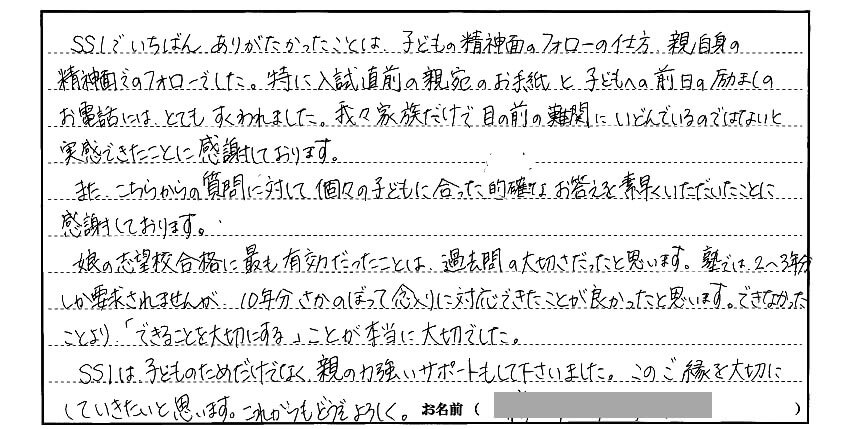 SS1でいちばん、ありがたかったことは、子どもの精神面のフォローの仕方、親自身の
精神面でのフォローでした。特に入試直前の親宛のお手紙と子どもへの前日の励ましの
お電話には、とてもすくわれました。我々家族だけで目の前の難関にいどんでいるのではないと
実感できたことに感謝しております。
また、こちらからの質問に対して個々の子どもに合った的確なお答えを素早くいただいたことに
感謝しております。
娘の志望校合格に最も有効だったことは、過去問の大切さだったと思います。塾では2〜3年分
しか要求されませんが、10年分さかのぼって念入りに対応できたことが良かったと思います。できなかった
ことより「できることを大切にする」ことが本当に大切でした。
SS1は、子どものためだけでなく、親の力強いサポートもして下さいました。このご縁を大切に
していきたいと思います。これからもどうぞよろしく。 お名前（ ）